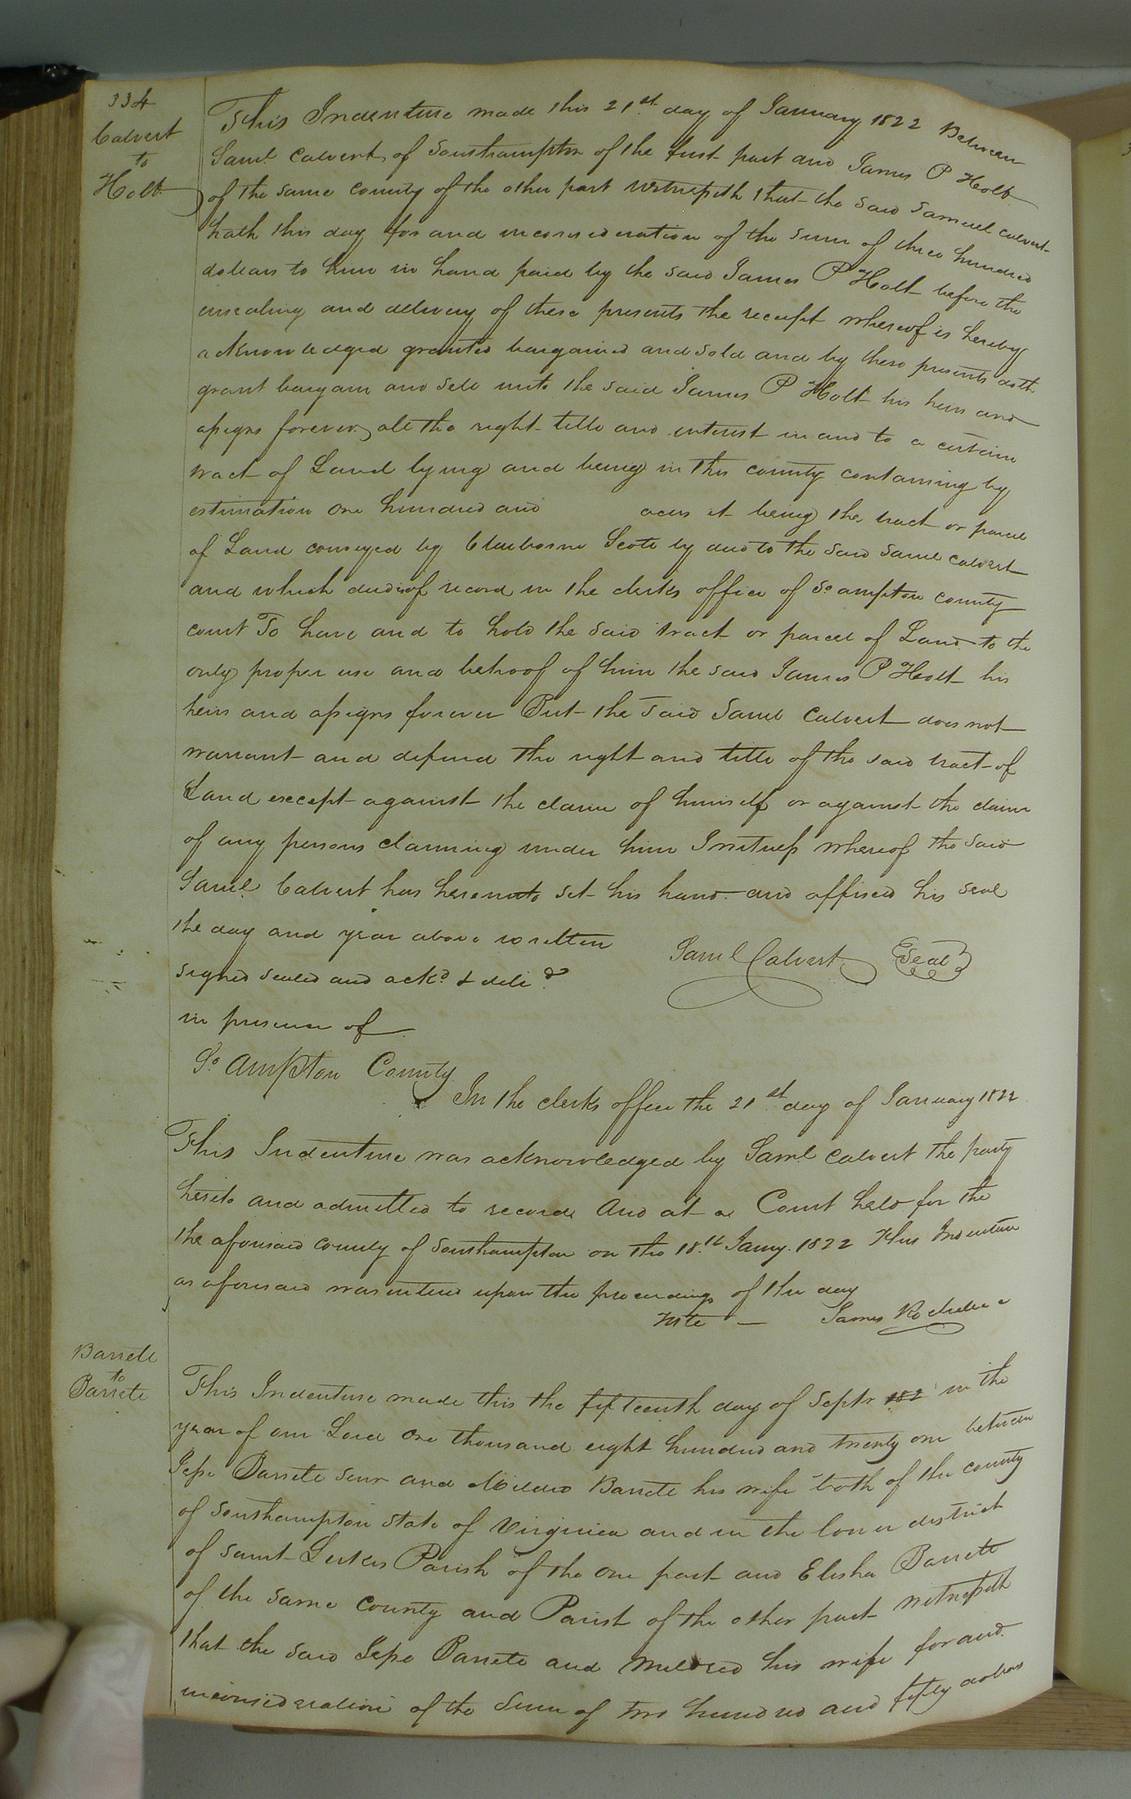 334
Calvert
to
Holt
This Indenture made this 21st day of January 1822 Between
Saml Calvert of Southampton of the first part and James P Holt
of the same county of the other part Witnesseth that the said Samuel Calvert
hath this day for and inconsideration of the sum of three hundred
dollars to him in hand paid by the said James P Holt before the
ensealing and delivery of these presents the receipt whereof is hereby
acknowledged granted bargained and sold and by these presents doth
grant bargain and sell unto the said James P Holt his heirs and
assigns forever all the right title and interest in and to a certain
tract of Land lying and being in this county containing by
estimation one hundred and acres it being the tract or parcel
of Land conveyed by Claiborne Scott by deed to the said Saml Calvert
and which deed is of record in the clerks office of So ampton county
court To have and to hold the said tract or parcel of Land to the
only proper use and behoof of him the said James P Holt his
heirs and assigns forever But the said Saml Calvert does not
warrant and defend the right and title of the said tract of
Land except against the claim of himself or against the claim
of any persons claiming under him Inwitness whereof the said
Saml Calvert has hereunto set his hand and affixed his seal
the day and year above written
Saml Calvert Seal
signed sealed and ackd & delid
in presence of
So Ampton County
In the clerks office the 21st day of January 1822
This Indenture was acknowledged by Saml Calvert the party
hereto and admitted to record And at a Court held for the
the aforesaid county of Southampton on the 18th Jany. 1822 This Indenture
as aforesaid was entered upon the proceedings of the day
Teste James Rochelle
Barrett
to
Barrett
This Indenture made this the fifteenth day of Septr 182 in the
year of our Lord One thousand eight hundred and twenty one between
Jesse Barrett Senr and Mildred Barrett his wife both of the county
of Southampton State of Virginia and in the lower district
of Saint Lukes Parish of the one part and Elisha Barrett
of the same County and Parish of the other part witnesseth
that the said Jesse Barrett and Mildred his wife for and
inconsideration of the Sum of two hundred and fifty dollars